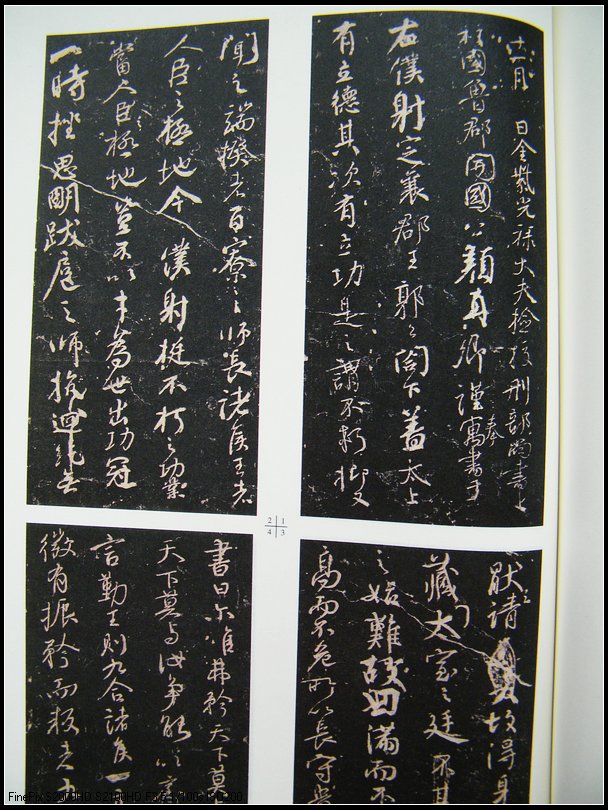 十一月 日金紫光祿大夫檢校刑部尚書上
柱國魯郡開國公顏真卿謹奉寓書于
右僕射定襄郡王郭公閤下蓋太上
有立德其次有立功是之謂不朽抑又
聞之端揆者百寮之師長諸侯王者
人臣之極地今僕射挺不朽之功業
當人臣極地豈不以才為世出功冠
一時挫思明跋扈之師抗迴紇無
2 1
4 3
厭之請故得身
藏太室之廷
之始難故曰滿而不
高而不危所以長守
書曰尔唯弗矜天下莫
天下莫与汝争能以齊
言勤王則九合諸侯一
微有振矜而叛者九
FinePix S2000HD